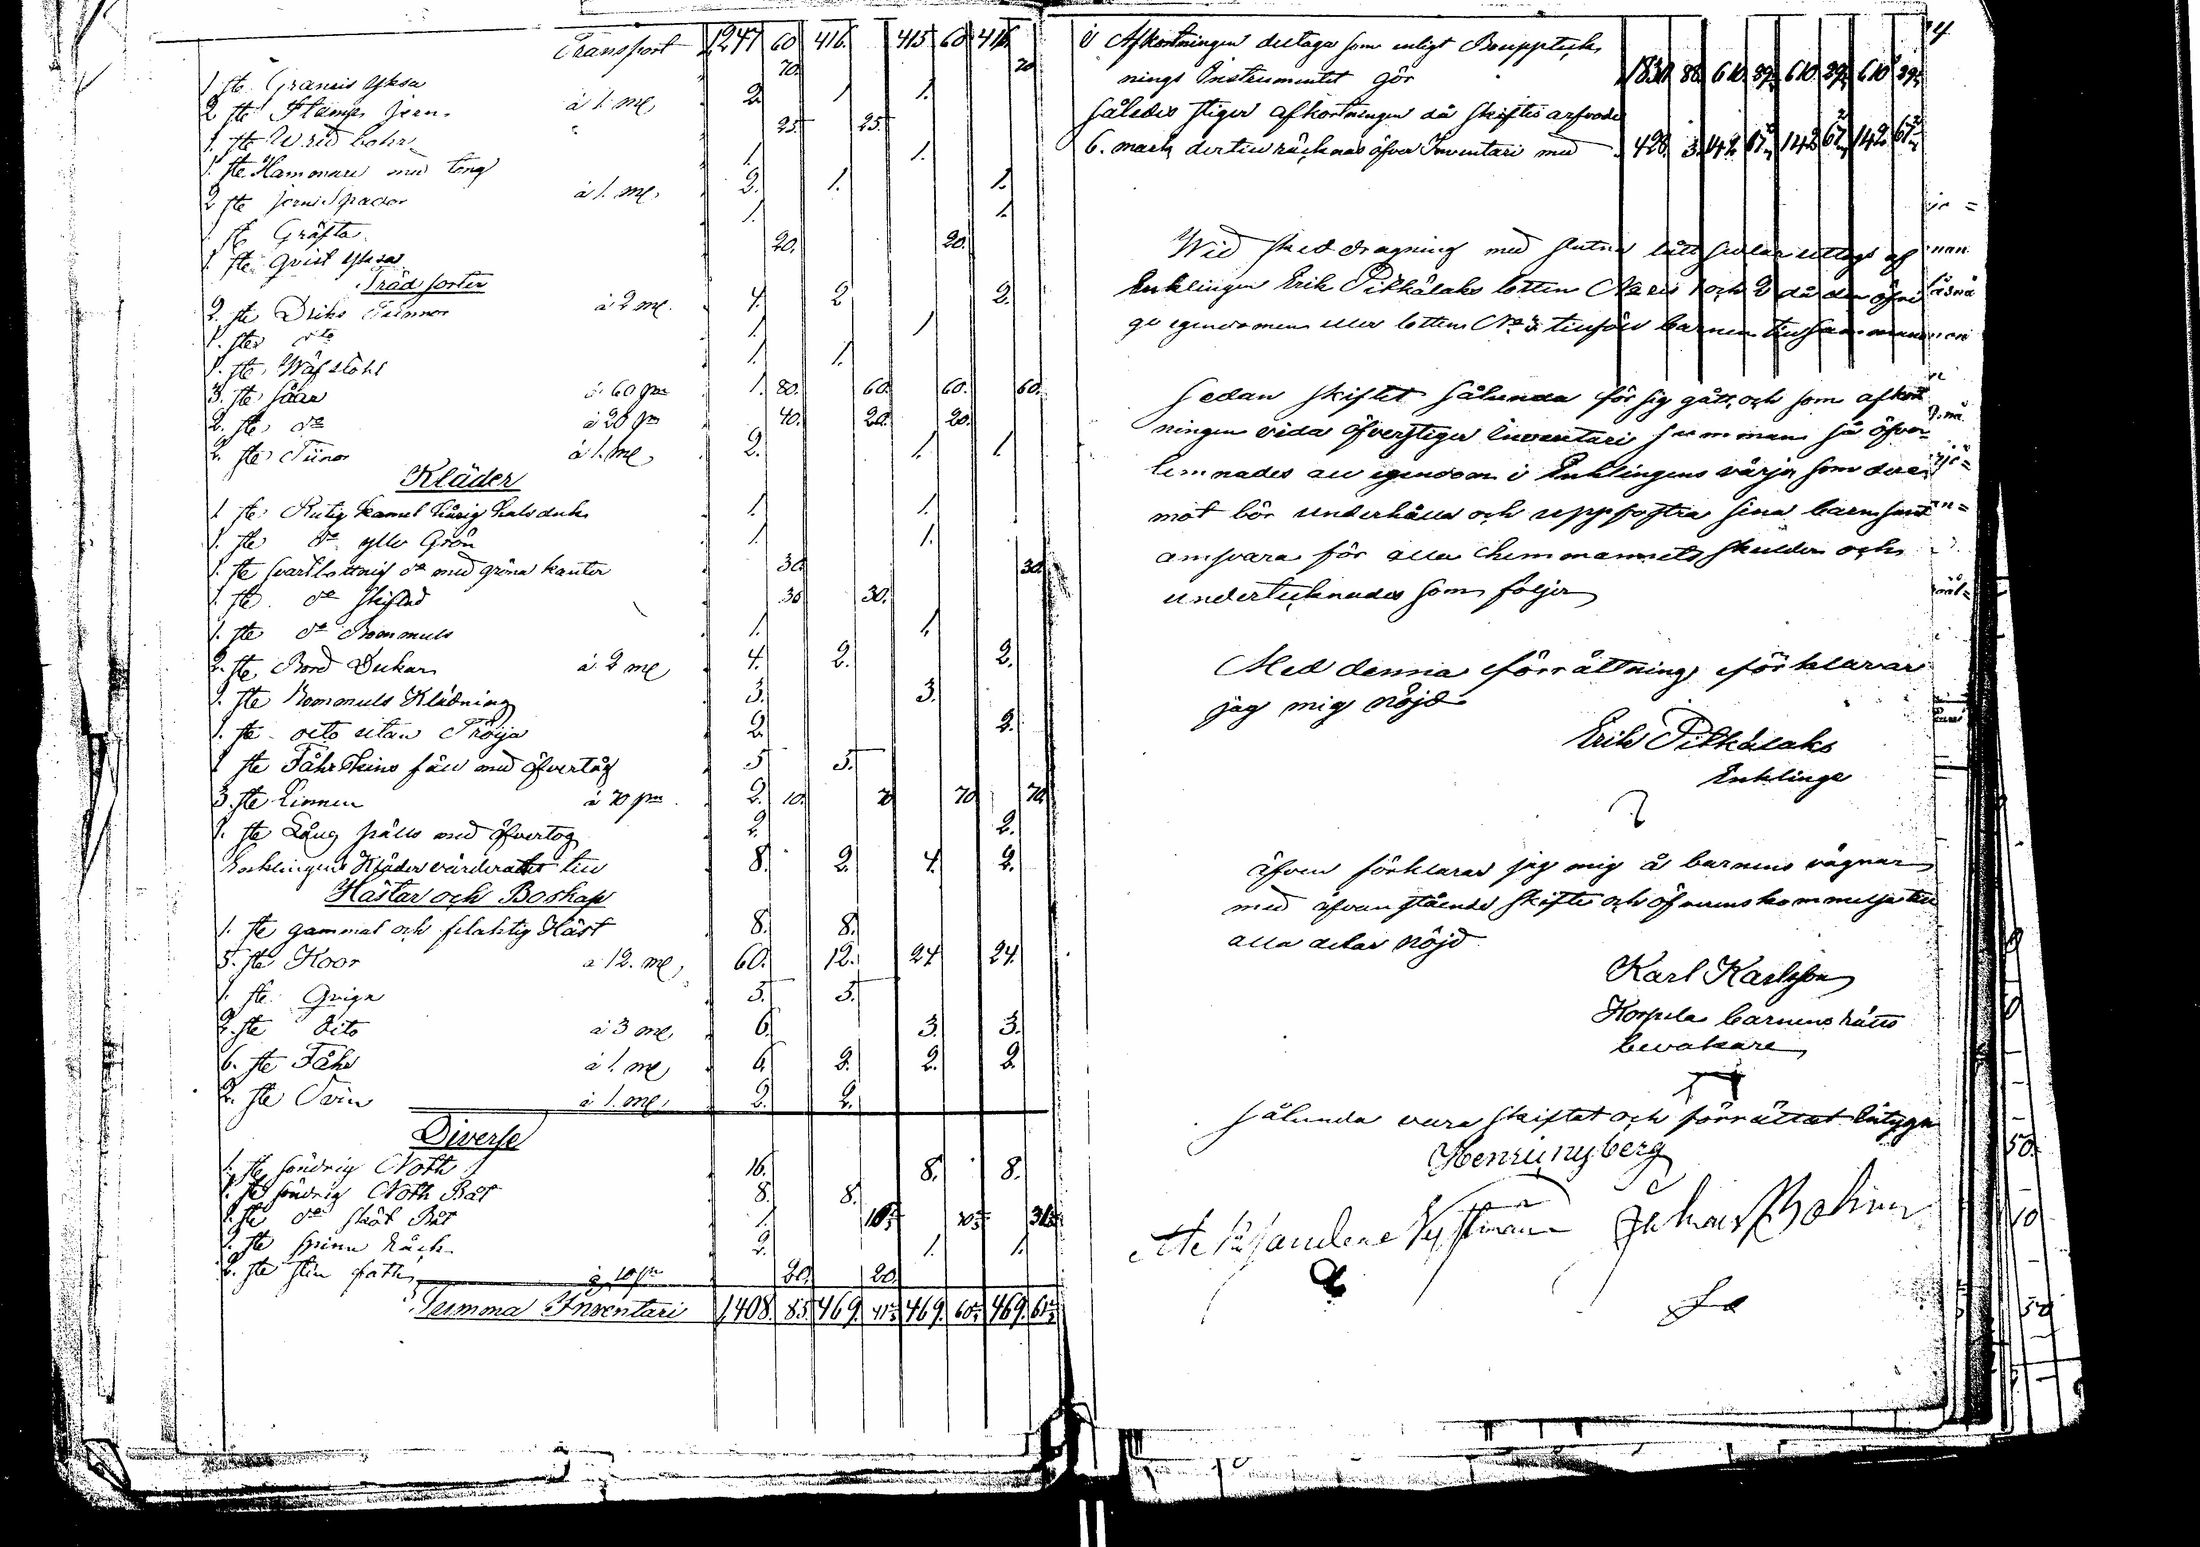 Transport 1247 60 416. 415 60 416.
1 ste Gransis Yksa 70. 20
2 ste Stamp Jern. à 1. me, 2. 1 1.
1. ste Wrid bohr 25. 25.
1. ste Hammare med tong 1. 1.
2 ste jern Spador à 1. me, 2. 1. 1.
1 st Gräfta 1. 1.
1. ste qvist yksa 20. 20.
Träd sorter
2. ste Driks Tunnor à 2 me. 4. 2 2.
1. ste dto 1. 1
1. ste Wäfstohl 1. 1.
3. ste såar à 60 pm 1. 80. 60. 60. 60.
2. ste do à 20 pm 40. 20. 20.
2. ste Tiinor à 1. me, 2. 1. 1.
Kläder
1 ste Rutig kamel hårig halsduk 1. 1.
1. ste do ylle Grön 1. 1.
1. ste svartbottnig do med gröna kanter 30. 30.
1. ste do skiftad 30 30.
1. ste do Bommuls 1. 1.
2. ste Bord Dukar à 2 me 4. 2. 2.
1. ste Bommuls Klädning 3. 3.
1. ste dito utan Tröija 2. 2.
1 ste Fåhrskins fäll med öfvertåg 5 5.
3. ste Linnen à 70 pm. 2. 10. 70 70 70.
1. ste Lång pälls med öfvertog 2. 2.
Enklingens Kläder värderades till 8. 2. 4. 2.
Hästar och Boskap
1. ste gammal och felaktig Häst 8. 8.
5. ste Koor a 12. me, 60. 12. 24 24.
1. ste Qviga 5. 5.
2. ste dito à 3 me, 6. 3. 3.
6. ste Fåhr à 1. me 6. 2. 2. 2
2. ste Svin à 1. me, 2. 2.
Diverse
1. ste söndrig Noth 16. 8. 8.
1. ste söndrig Noth Båt 8. 8.
1. ste do skät Båt 1.
1. ste spinn råck 2. 1. 1.
2. ste sten fath à 10 pm 20. 20.
Summa Inventari 1,408. 85. 469. 469. 469.
4
i Afkortningen deltaga som enligt Bouppteck,
nings Instrumentet gör 1830. 88. 610. 610. 610
således stiger afkortningen då skiftis arfvode
6. mark dertill räcknas öfver Inventari med 428. 3. 142. 142 142
Wid sked dragning med slutna låttsedlar uttogs af
Enklingen Erik Pitkälaks lotten No ris 1 och 2 då den öfri
ge egendomen eller lotten No 3 tillföll barnen tillsamman
Sedan skiftet sålunda för sig gått, och som afkort
ningen vida öfverstiger Inventari summan så öfver
lemnades all egendom i Enklingens värjo, som dere
mot bör underhålla och uppfostra sina barn samt
ansvara för alla hemmanets skulder och
undertecknades som följer
Med denna förrättning förklarar
jag mig nöjd
Erik Pitkälaks
Enklinge
äfven förklarar jag mig å barnens vägnar
med äfvanstående skifte och öfverenskommelse till
alla delar nöjd
Karl Karlsson
Korpela barnens rätts
bevakare
Sålunda vara skiftat och förrättat intyga
Henric nyberg